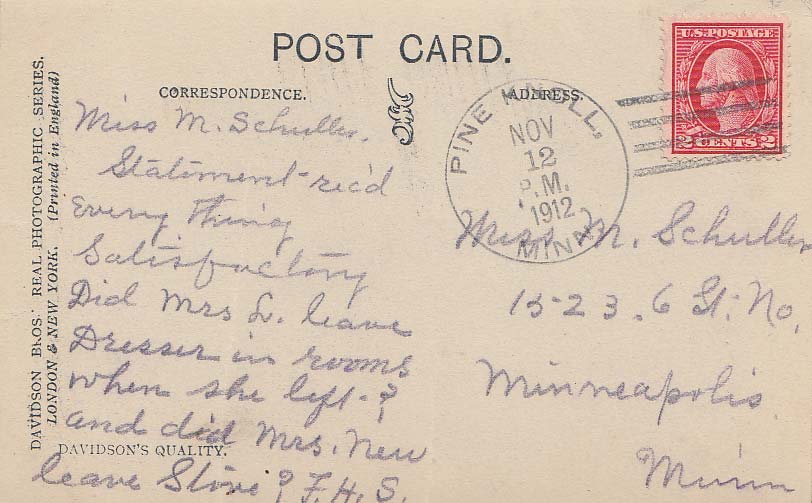 POST CARD.
CORRESPONDENCE.
ADDRESS.
U.S. POSTAGE
2 CENTS 2
PINE KNOLL,
NOV
12
P.M.
1912
MINN.
DAVIDSON BROS.' REAL PHOTOGRAPHIC SERIES.
LONDON & NEW YORK. (Printed in England)
Miss M. Schuller.
Statement rec'd
Every Thing
Satisfactory
Did Mrs L. leave
Dresser in rooms
when she left?
and did Mrs. New
leave Stove? F.H.S.
DAVIDSON'S QUALITY.
Miss M. Schuller
1523. 6 St. No.
Minneapolis
Minn